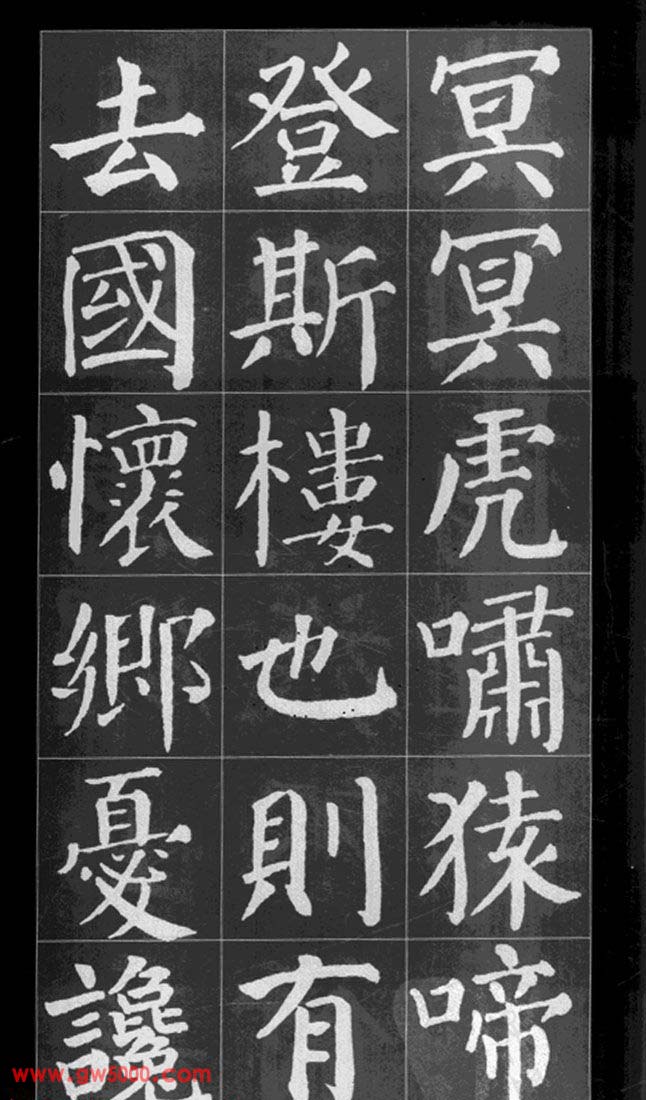 冥冥虎嘯猿啼
登斯樓也則有
去國懷鄉憂讒
www.gw5000.com